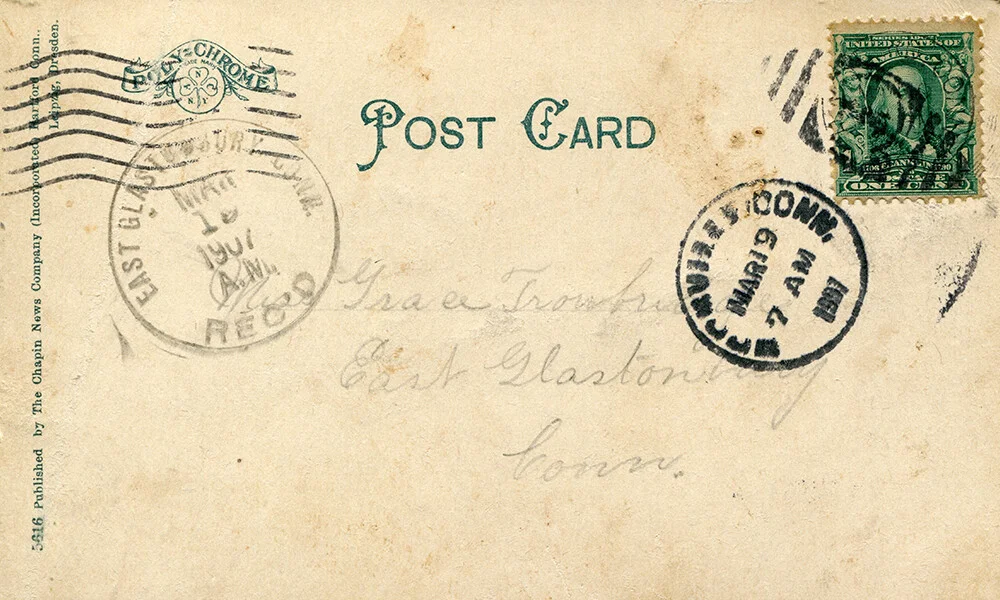 POLY-CHROME
TRADE MARK
A N N Y
POST CARD
SERIES 1902
UNITED STATES OF
AMERICA
FRANKLIN
ONE CENT
EAST GLASTONBURY CONN.
MAR
19
1907
A.M.
REC'D
ROCKVILLE, CONN.
MAR 19
7 AM
1907
Miss Grace Trowbridge
East Glastonbury
Conn.
5616 Published by The Chapin News Company (Incorporated) Hartford Conn.,
Leipzig, Dresden.